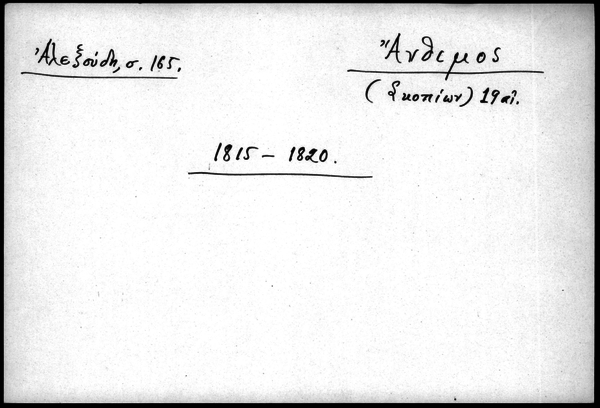 Ἀλεξούδη, σ. 165.
Ἄνθεμος
(Σκοπίων) 19 αἰ.
1815 – 1820.